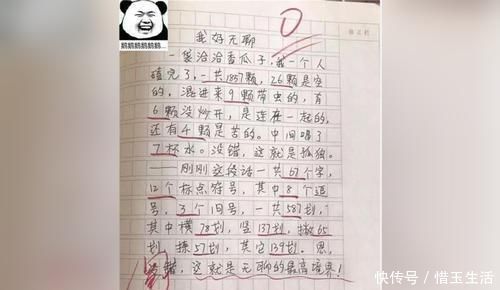 鹅鹅鹅鹅鹅鹅
0
我好无聊
一袋洽洽香瓜子,我一个人
磕完了,一共1857颗,26颗是空
的,混进来9颗带虫的,有
6颗没炒开,是连在一起的,
还有4颗是苦的。中间喝了
7杯水。没错,这就是孤独。
——刚刚这段话一共67个字,
12个标点符号,其中8个逗
号,3个句号,一共587划,
其中横78划,竖137划,撇65
划,捺57划,其它139划。恩,
没错,这就是无聊的最高境界!
阅
快传号/惜玉生活